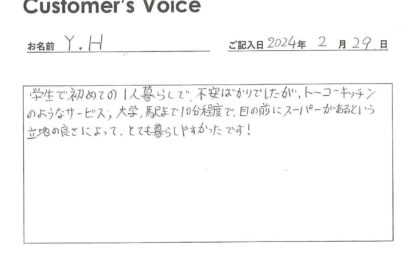 Customer's Voice
お名前 Y.H
ご記入日 2024年 2 月 29 日
学生で初めての1人暮らしで、不安ばかりでしたが、トーコーキッチン
のようなサービス、大学、駅まで10分程度で、目の前にスーパーがあるという
立地の良さによって、とても暮らしやすかったです!